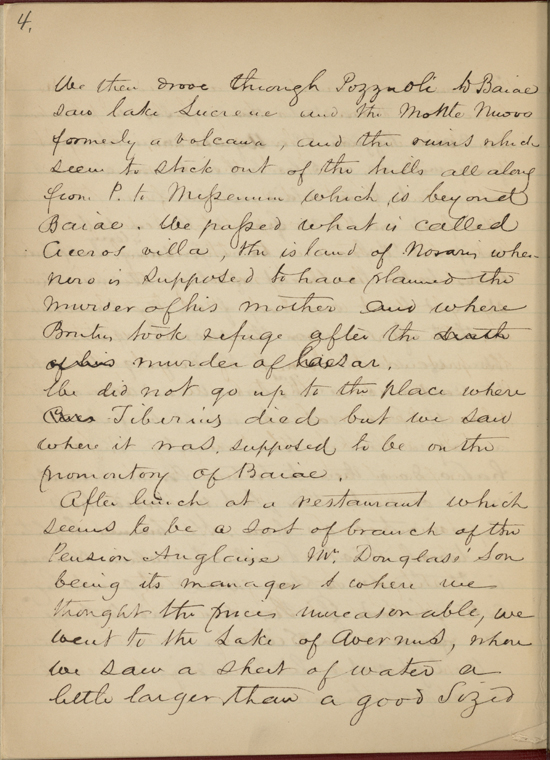 4.
We then drove through Pozzuoli to Baiae
saw lake Lucrene and the Monte Nuovo
formerly a volcano, and the ruins which
seem to stick out of the hills all along
from P. to Missenum which is beyond
Baiae. We passed what is called
Ciceros villa, the island of Nosaris where
nero is supposed to have planned the
murder of his mother and where
Brutus took refuge after the death
of his murder of Caesar.
We did not go up to the place where
Tiberius died but we saw
where it was supposed to be on the
promontory of Baiae.
After lunch at a restaurant which
seems to be a sort of branch of the
Pension Anglaise Mr. Douglass' Son
being its manager & where we
thought the prices unreasonable, we
went to the Lake of Avernus, where
we saw a sheet of water a
little larger than a good sized